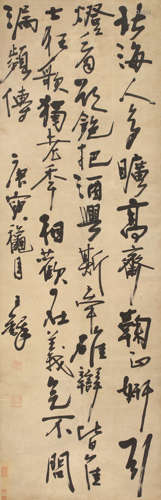 北海人多曠高齋鞠正妍引
燈看飽把酒興斯牽雄辯皆佳
士狂歌獨老年相歡在義氣不問
漏頻傳 庚寅臘月 王鐸